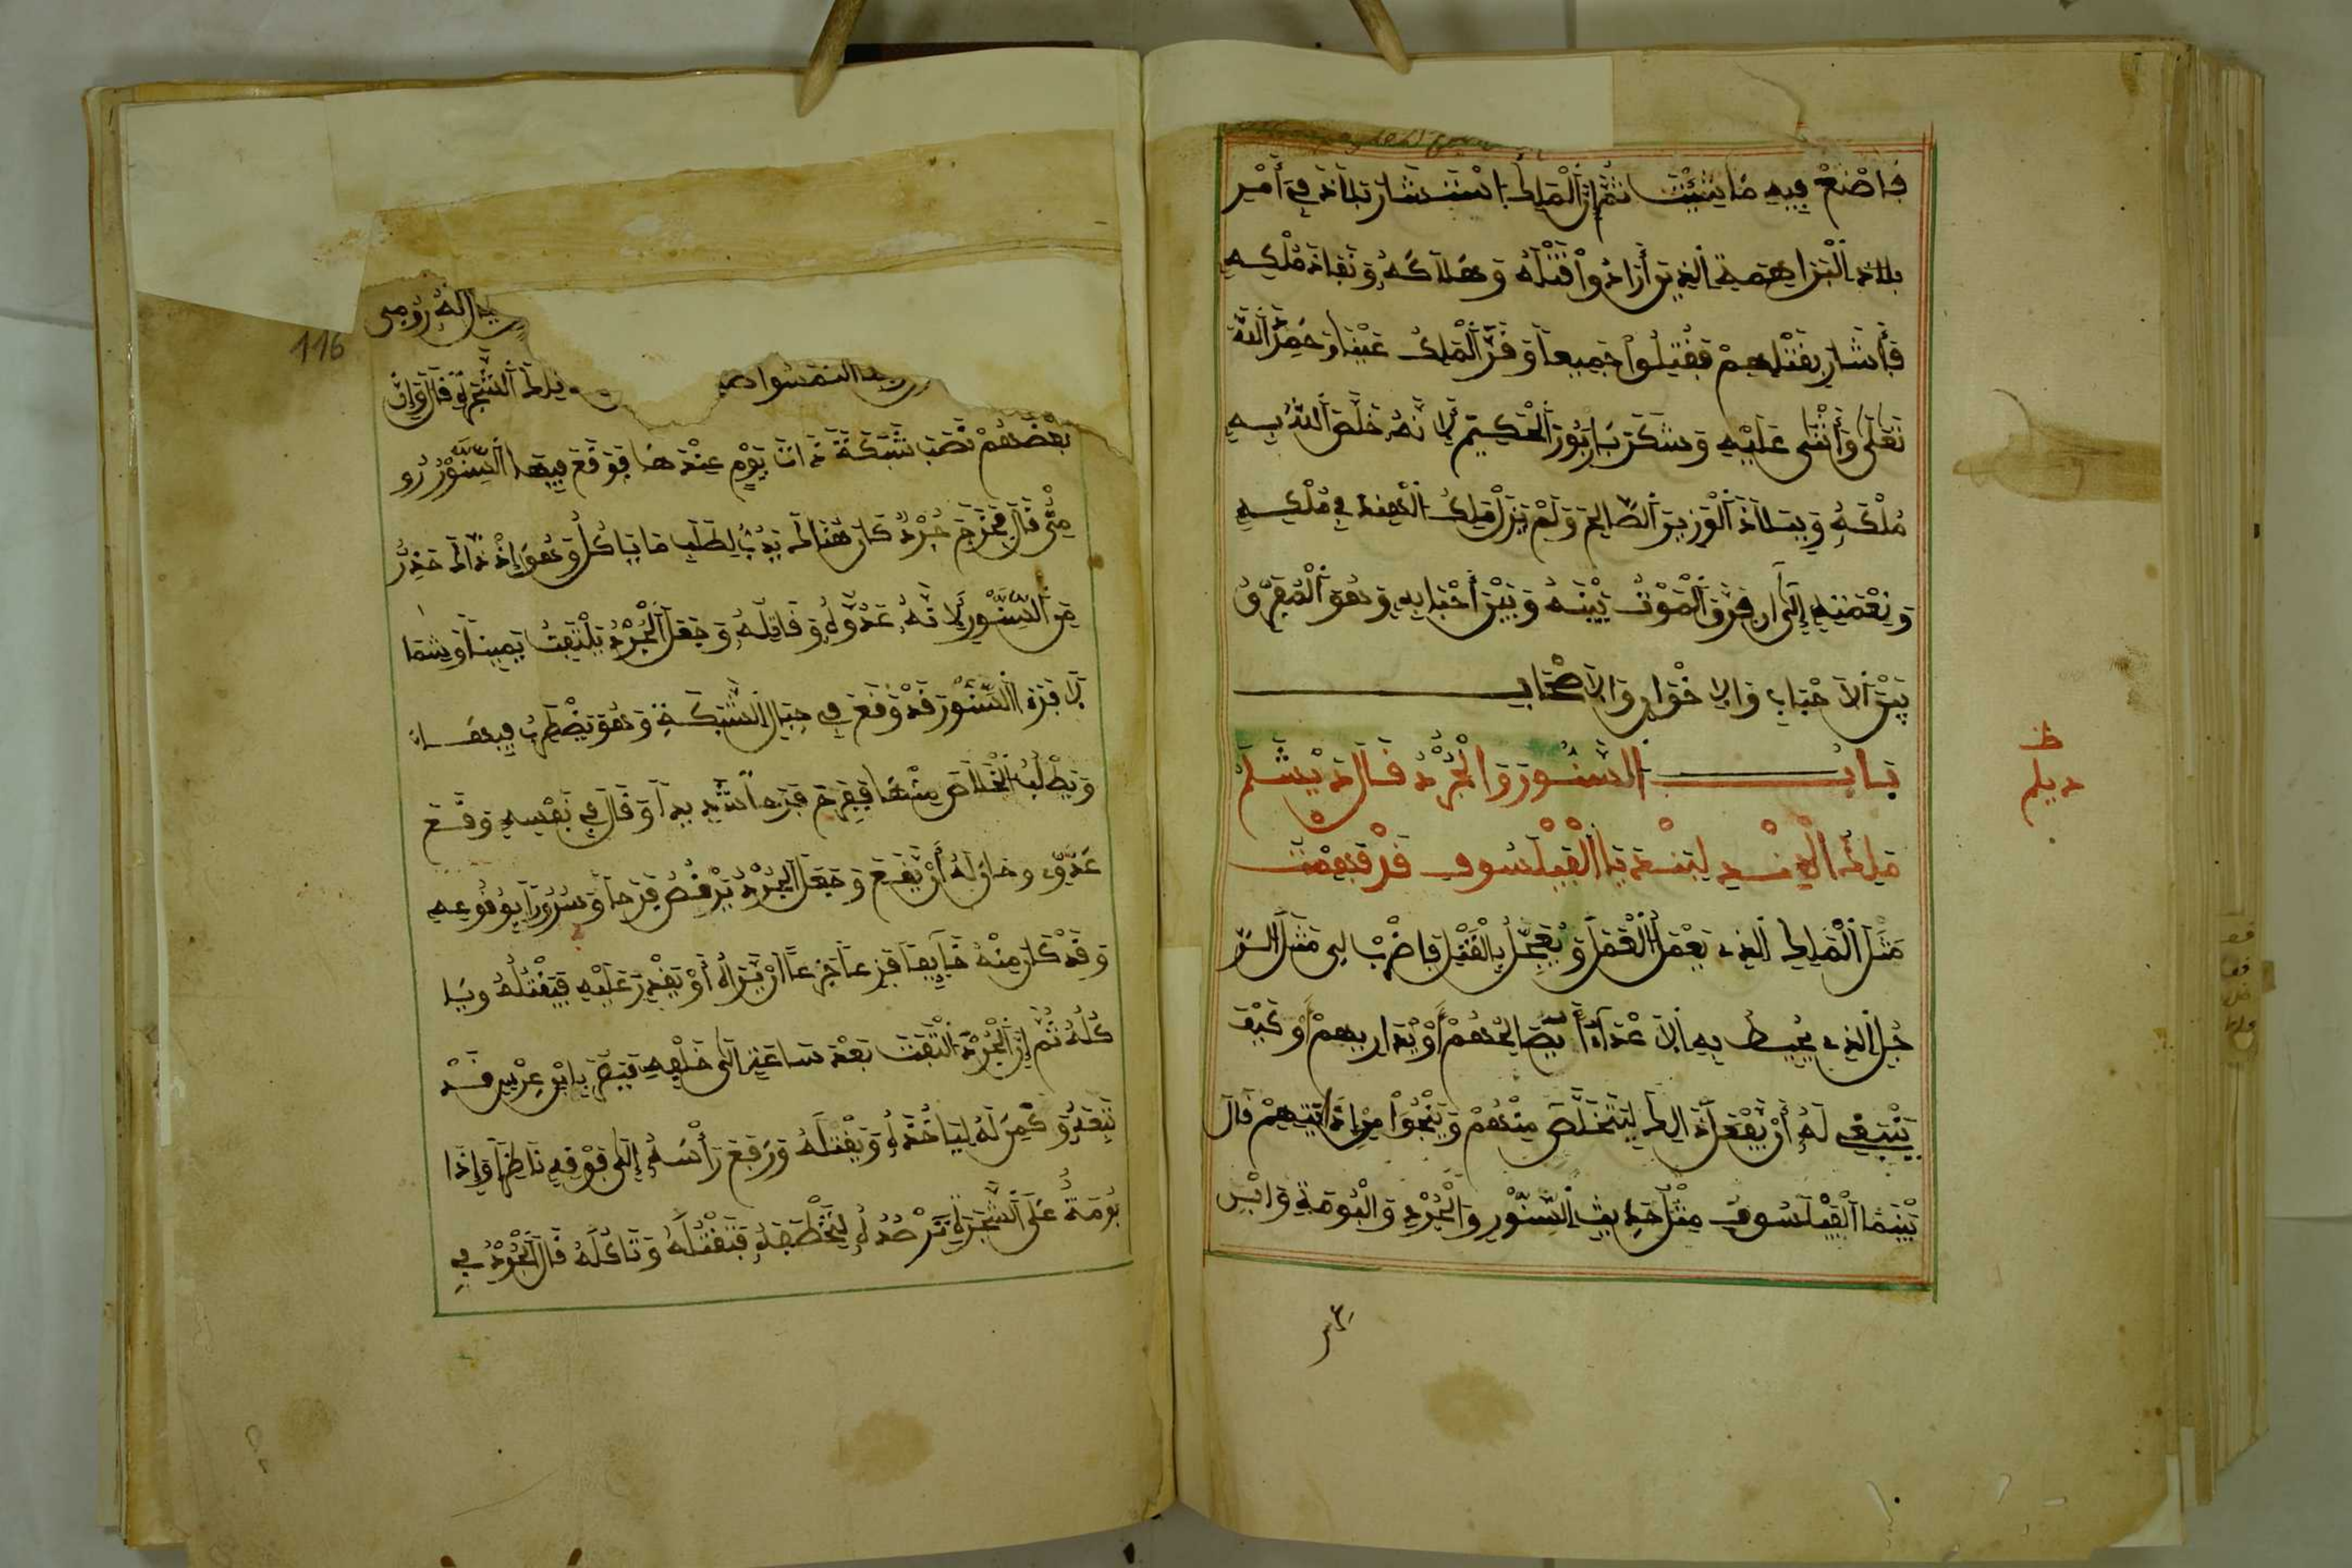 فاصنع فيه ما شئت ثم إن الملك استشار بلاذ في أمر
بلاد البراهمة الذين أرادوا قتله وهلاكه ونفاذ ملكه
فأشار بقتلهم فقتلوا جميعا وقر الملك عينا وحمد الله
تعلى وأثنى عليه وشكر باربور الحكيم لانه خلص الله به
ملكه وببلاذ الوزير الصالح ولم يزل ملك الهند في ملكه
ونعمته إلى ان فرق الموت بينه وبين أحبابه وهو المفرق
بين الاحباب والاخوان والاصحاب
باب السنور والجرذ قال ديشلم
ملك الهند لبيدبا الفيلسوف قد فهمت
مثل الملك الذي يعمل العمل ويعجل بالفتل فاضرب لي مثل الر
جل الذي يحيط به الاعداء أيصالحهم أو يداريهم أو كيف
ينبغي له أن يفعل ذالك ليتخلص منهم وينجوا من إذايتهم قال
بينما الفيلسوف مثل حديث السنور والجرذ والبومة وابن
ظ
ديلم
116
له رومي
تلك الشجرة قال وإن
بعضهم نصب شبكة ذات يوم عندها فوقع فيها السنور رو
مي قال فخرج جرذ كان هنالك يدب لطلب ما ياكل وهو إذ ذاك حذر
من السنور لانه عدوله وقاتله وجعل الجرذ يلتفت يمينا وشما
لا فرءا السنور قد وقع في حبال الشبكة وهو يضطرب فيها
ويطلب الخلاص منها ففرح فرحا شديدا وقال في نفسه وقع
عدوي وحان له أن يقع وجعل الجرذ يرقص فرحا وسرورا بوقوعه
وقد كان منه خايفا فزعا جزعا أن يراه أو يقدر عليه فيقتله ويا
كله ثم إن الجرذ التفت بعد ساعة الى خلفه فبصر بابن عرس قد
تبعه وكمن له لياخذه ويقتله ورفع رأسه إلى فوقه ناظرا وإذا
بومة على الشجرة ترصده لتخطفه فتقتله وتاكله قال الجرذ في